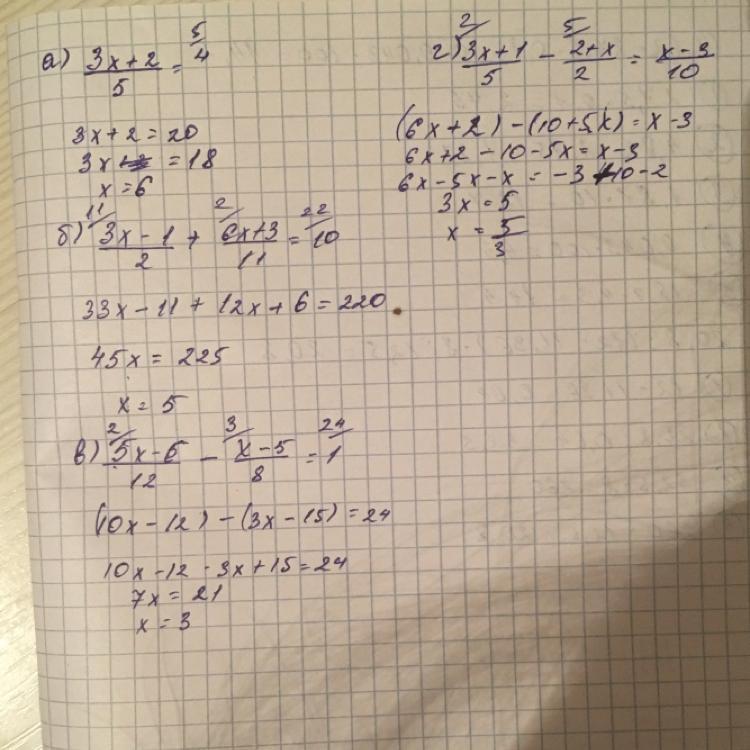 а) (3x+2)/5 = 4 ^5/
3x+2 = 20
3x = 18
x = 6
б) ^11/ (3x-1)/2 + ^2/ (6x+3)/11 = ^22/ 10
33x - 11 + 12x + 6 = 220
45x = 225
x = 5
в) ^2/ (5x-6)/12 - ^3/ (x-5)/8 = ^24/ 1
(10x-12) - (3x-15) = 24
10x-12-3x+15=24
7x = 21
x = 3
г) ^2/ (3x+1)/5 - ^5/ (2+x)/2 = (x-3)/10
(6x+2) - (10+5x) = x-3
6x+2-10-5x = x-3
6x-5x-x = -3+10-2
3x = 5
x = 5/3